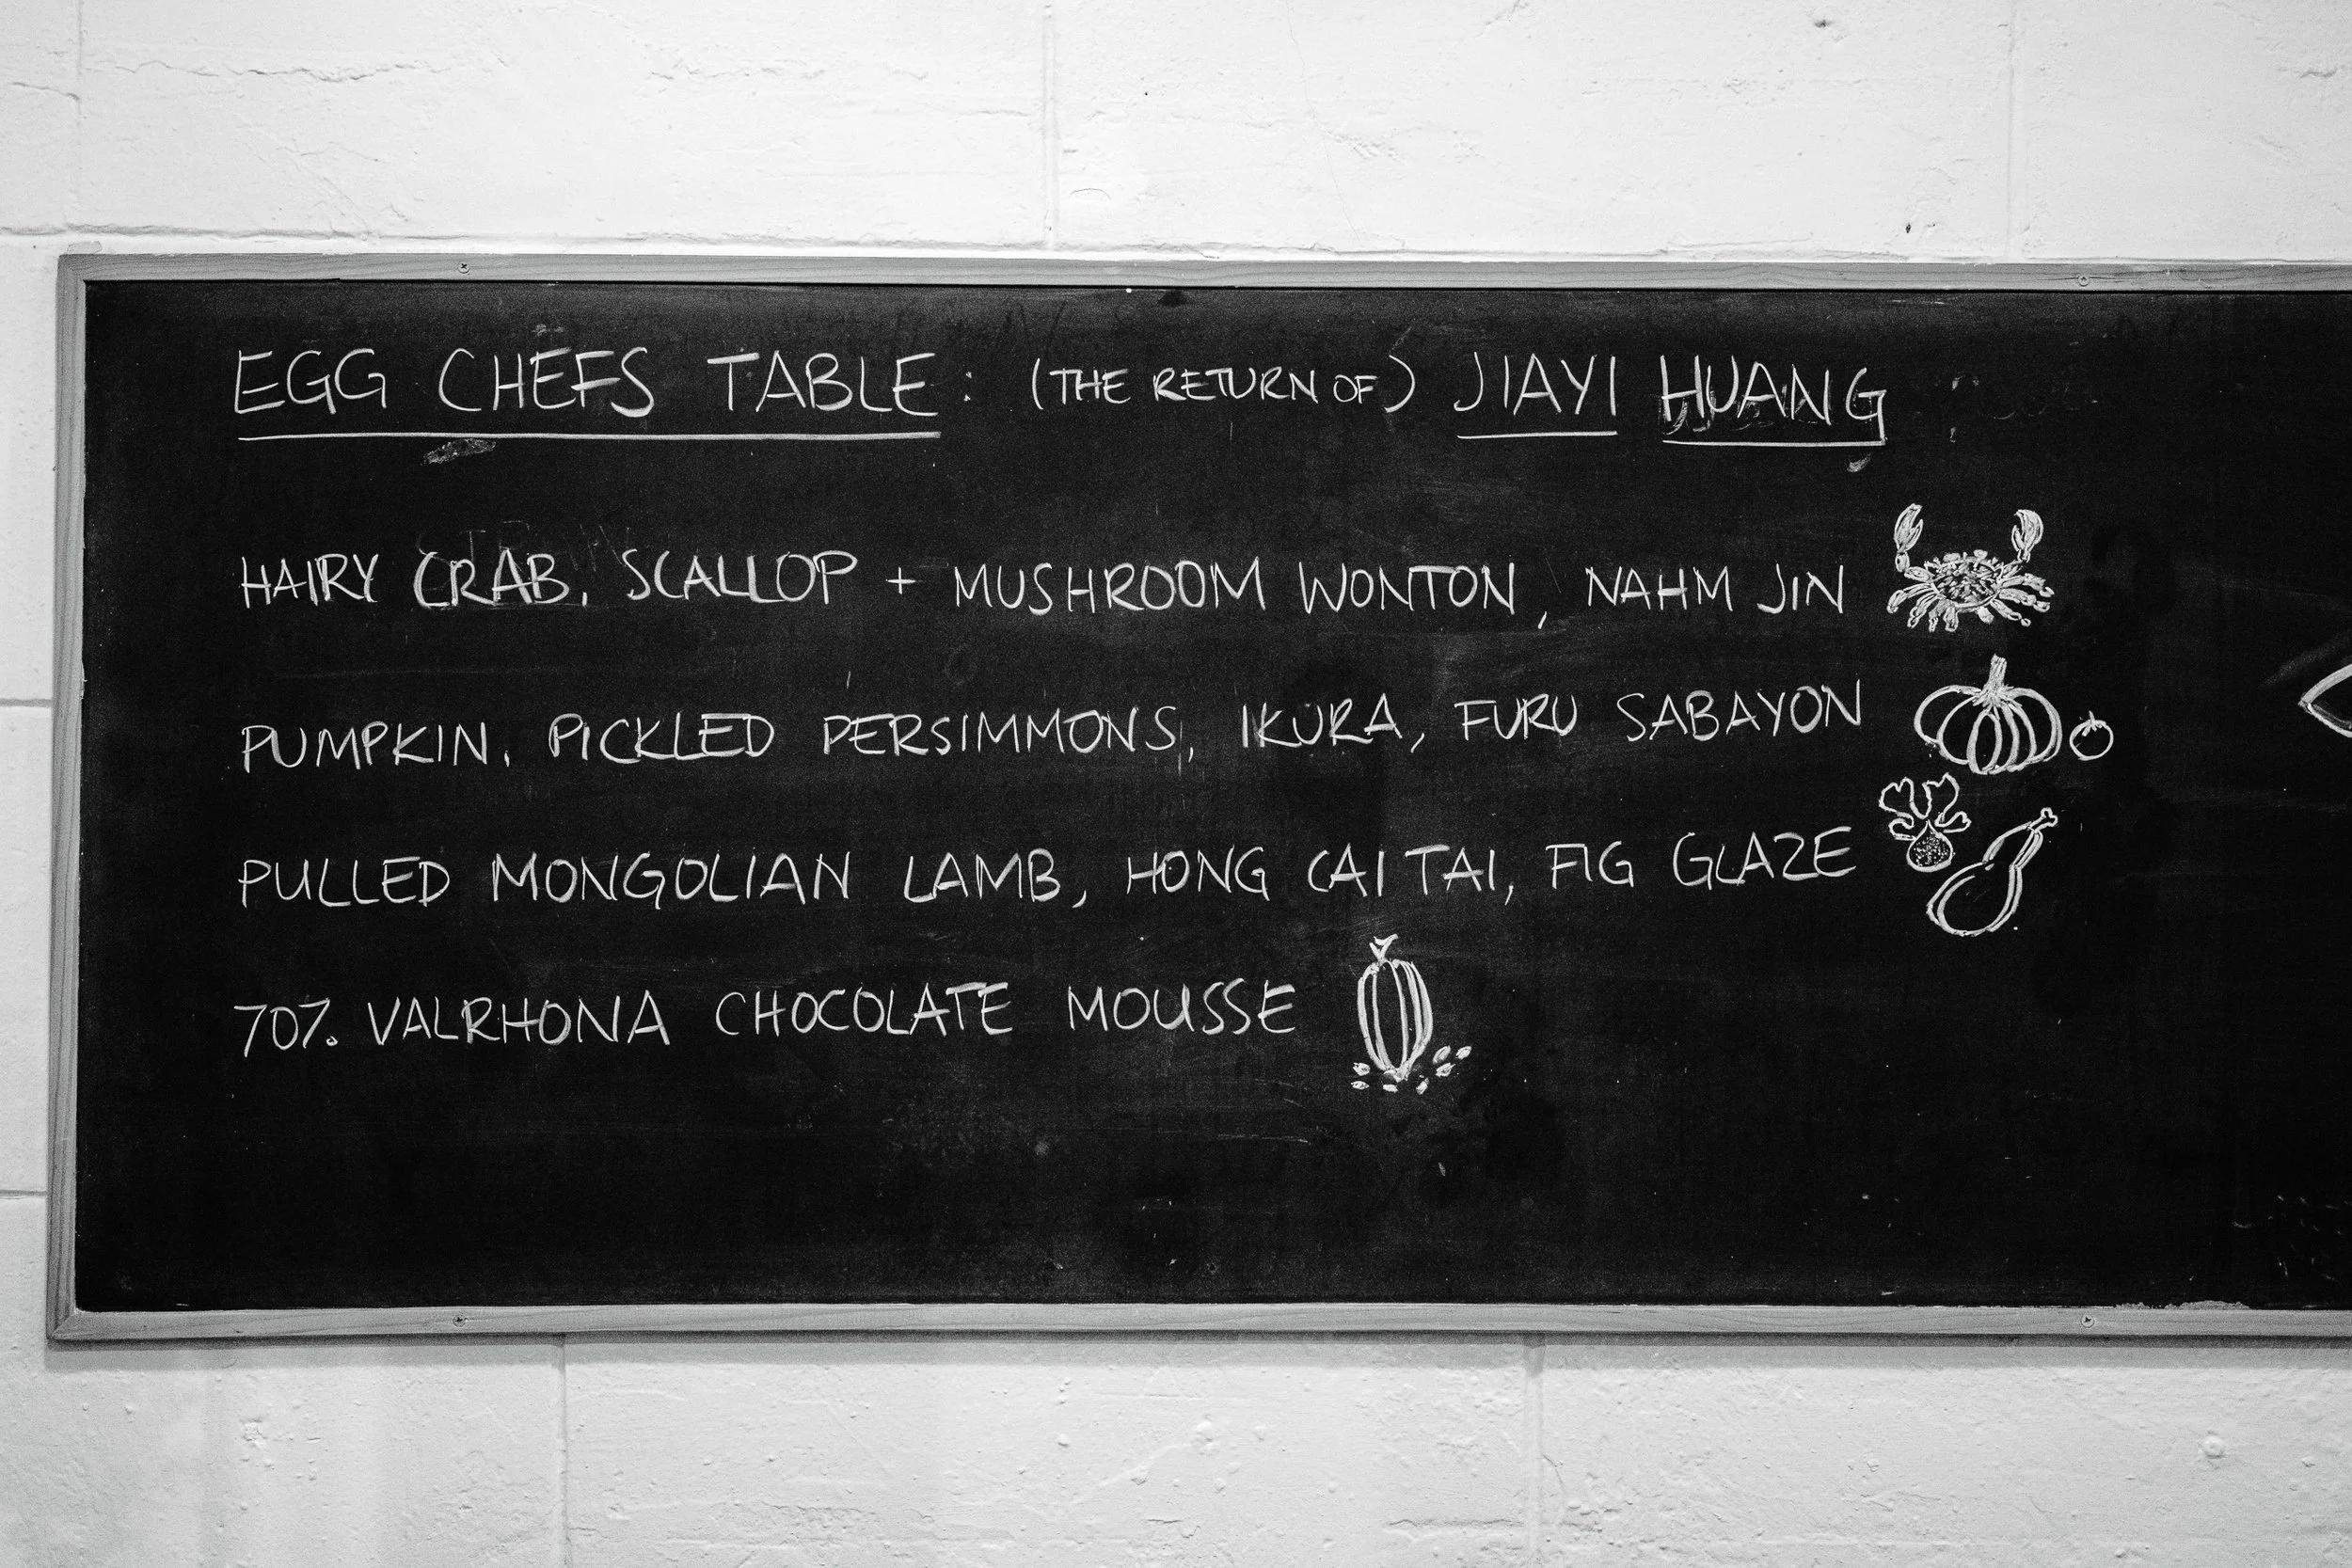 EGG CHEFS TABLE: (THE RETURN OF) JIAYI HUANG
HAIRY CRAB, SCALLOP + MUSHROOM WONTON, NAHM JIN
PUMPKIN, PICKLED PERSIMMONS, IKURA, FURU SABAYON
PULLED MONGOLIAN LAMB, HONG CAI TAI, FIG GLAZE
70% VALRHONA CHOCOLATE MOUSSE